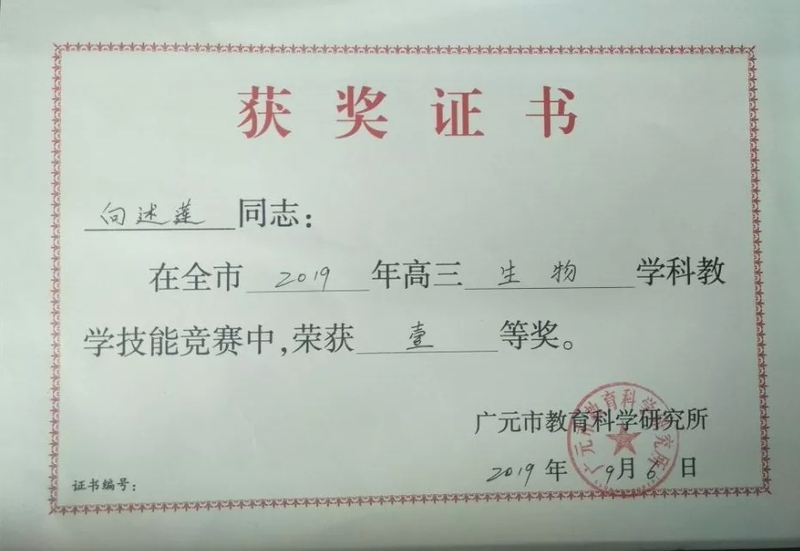 获奖证书
向述莲同志：
在全市2019年高三生物学科教
学技能竞赛中,荣获壹等奖。
广元市教育科学研究所
2019年9月6日
证书编号：
广元市教育科学研究所